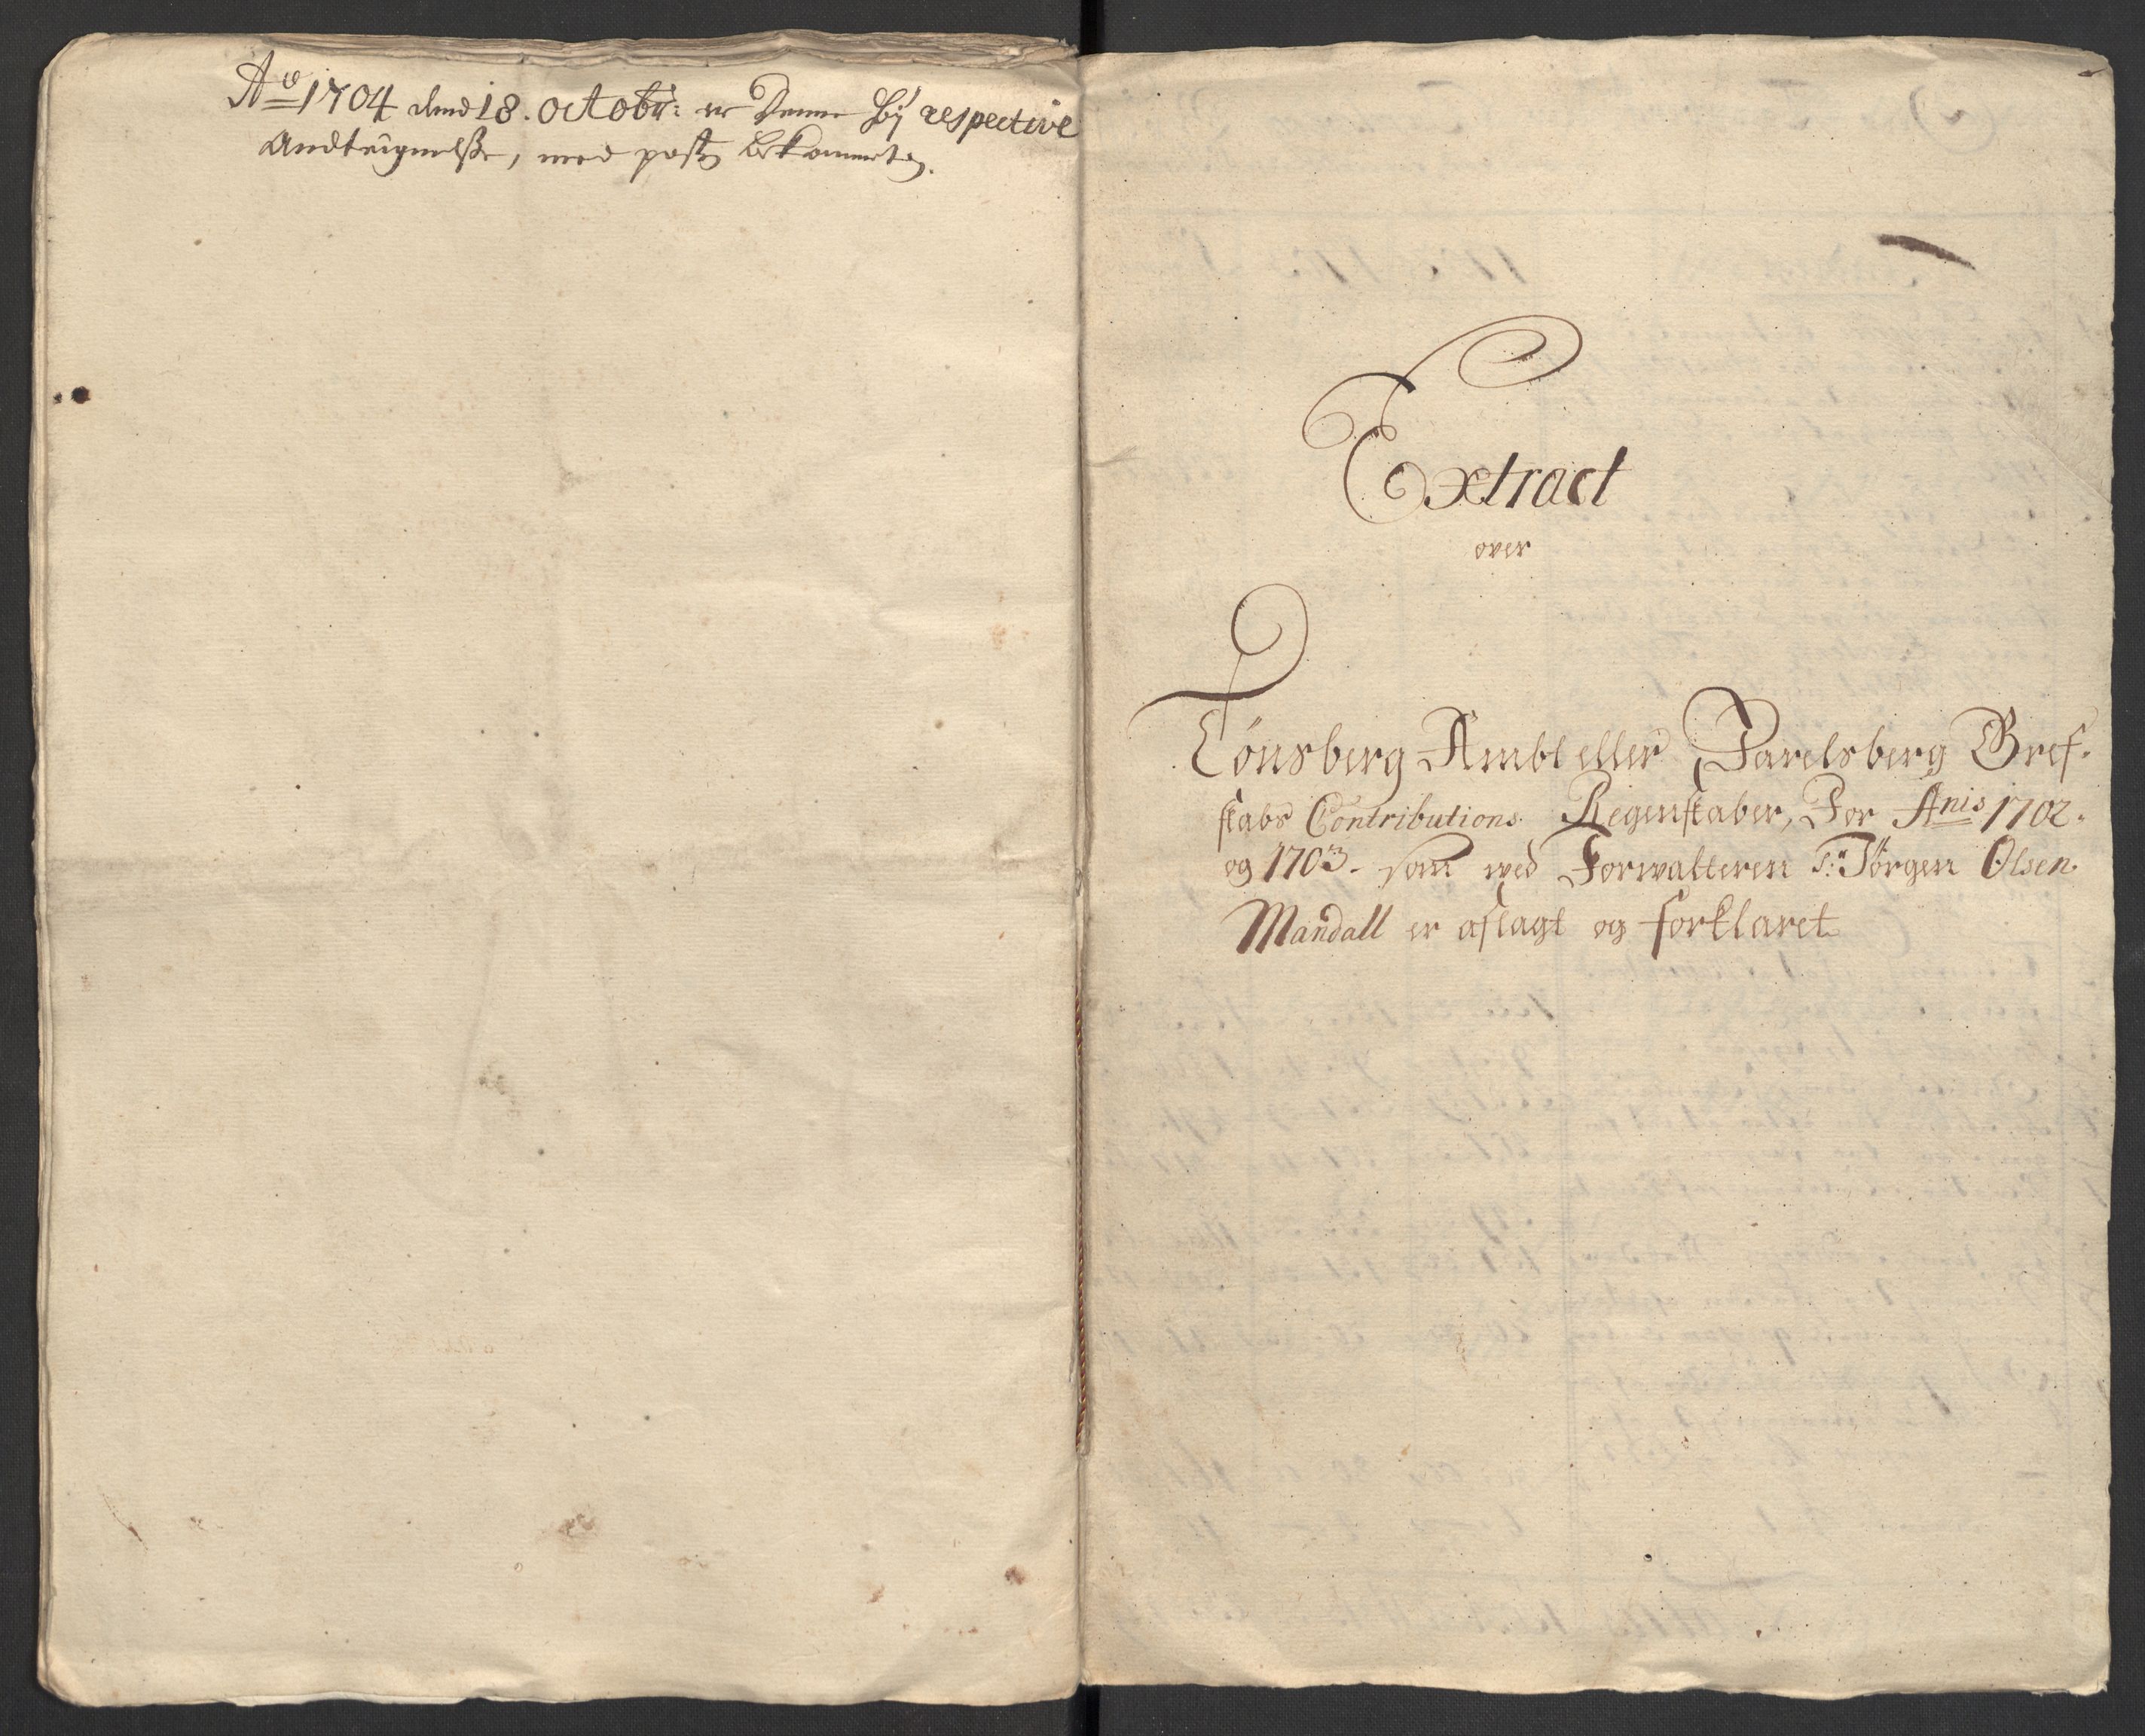 Ao 1704 dend 18. Octobr: er Denne By respective
Andteignelse, med post bekommet.
Extract
over
Tønsberg Ambt eller Jarelsberg Gref-
skabs Contributions Regenskaber, For Anis 1702.
og 1703. som wed Forwalteren Sr. Jørgen Olsen
Mandall er aflagt og forklaret